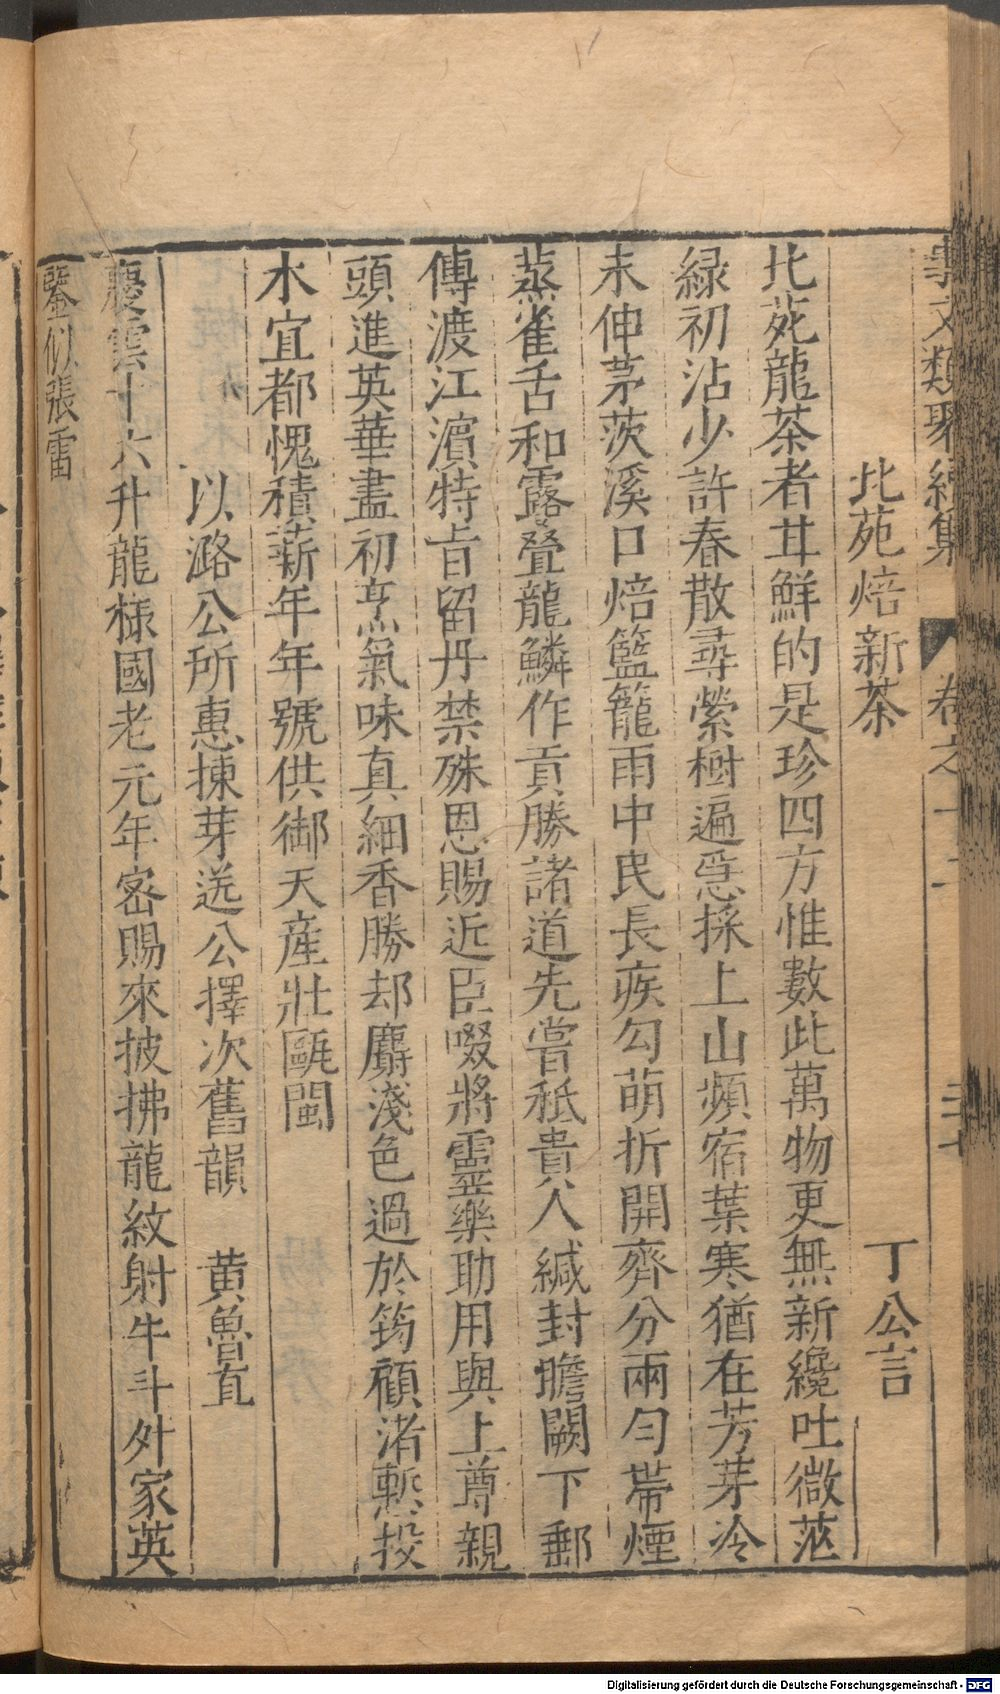 事文類聚續集 卷之十二 二十
北苑焙新茶 丁公言
北苑龍茶者甘鮮的是珍四方惟數此萬物更無新纔吐微茫
緑初沾少許春散尋縈樹遍急採上山頻宿葉寒猶在芳芽冷
未伸茅茨溪口焙籃籠雨中民長疾勾萌折開齊分兩勻帶煙
蒸雀舌和露疊龍鱗作貢勝諸道先嘗秪貴人緘封瞻闕下郵
傳渡江濱特旨留丹禁殊恩賜近臣啜將靈藥助用與上尊親
頭進英華盡初烹氣味真細香勝却麝淺色過於筠顧渚慙投
木宜都愧積薪年年號供御天産壯甌閩
以潞公所惠揀芽送公擇次舊韻 黄魯直
慶雲十六升龍樣國老元年密賜來披拂龍紋射牛斗外家英
鑒似張雷
Digitalisierung gefördert durch die Deutsche Forschungsgemeinschaft - DFG